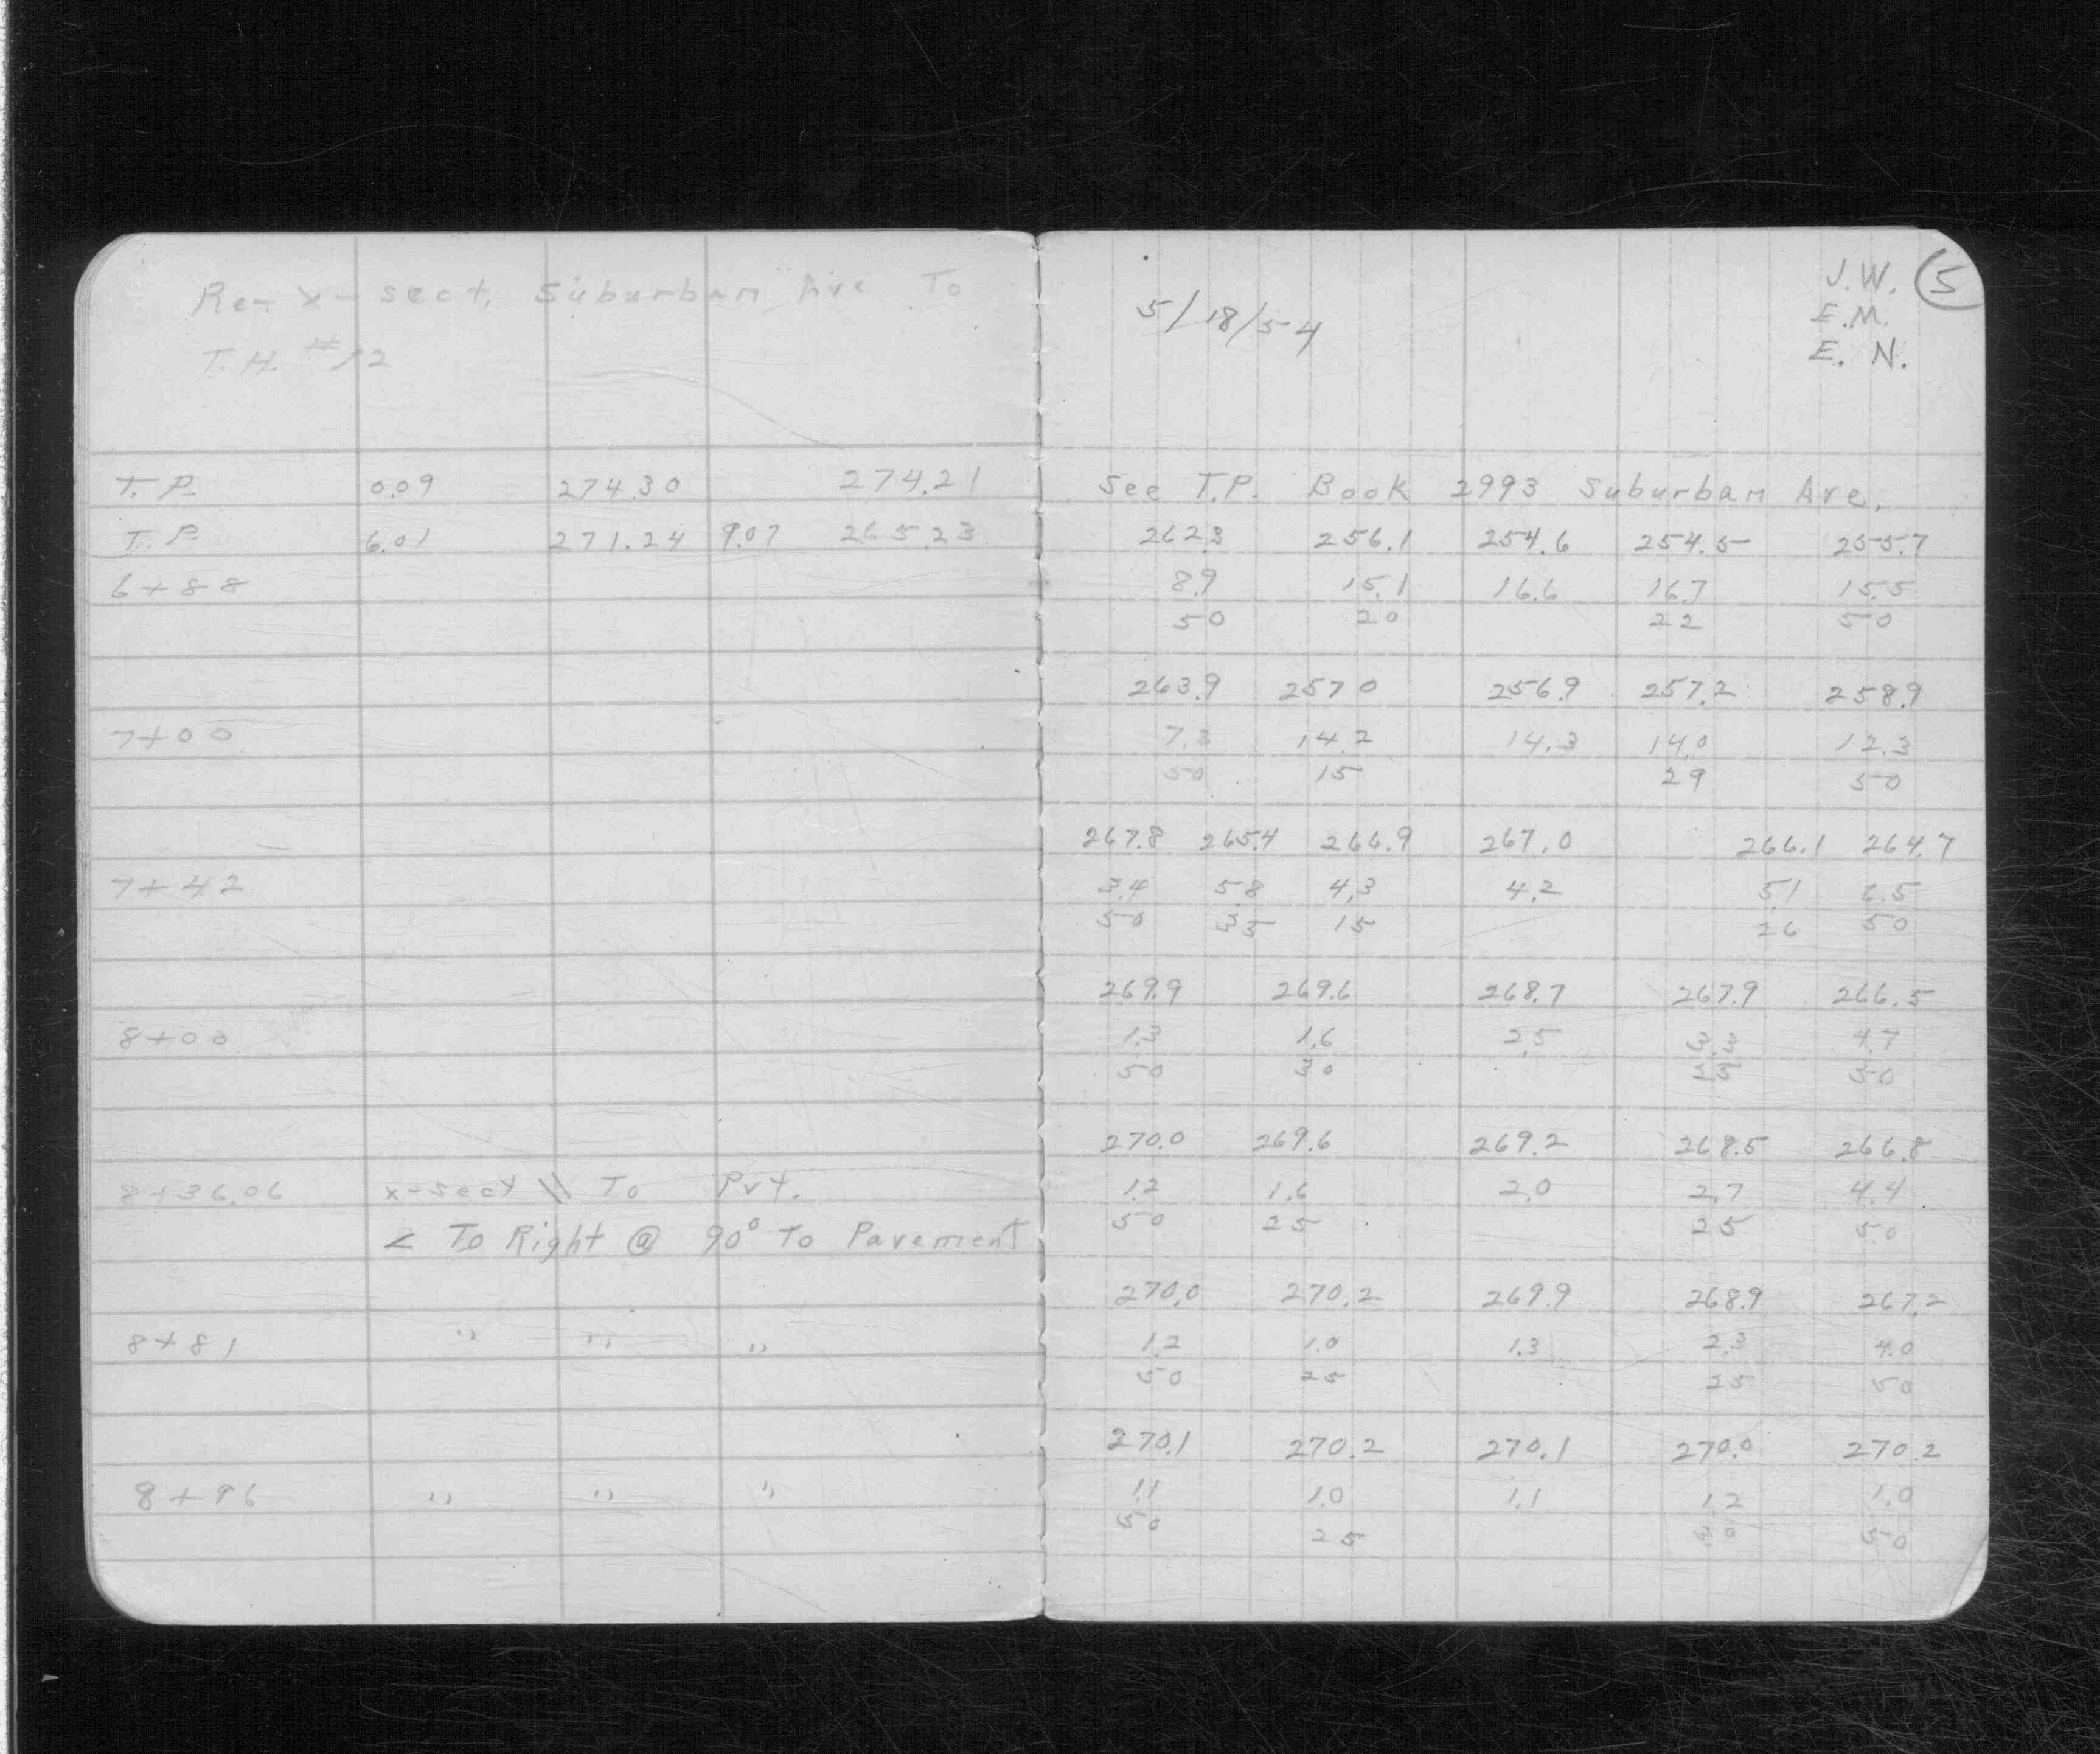 Re-x-sect. Suburban Ave To
T.H. #12
5/18/54
J.W. 5
E.M.
E. N.
T.P. 0.09 274.30 274.21 See T.P. Book 2993 Suburban Ave.
T.P. 6.01 271.24 9.07 265.23 262.3 256.1 254.6 254.5 255.7
6+88 8.9 15.1 16.6 16.7 15.5
50 20 22 50
263.9 257.0 256.9 257.2 258.9
7+00 7.3 14.2 14.3 14.0 12.3
50 15 29 50
267.8 265.4 266.9 267.0 266.1 264.7
7+42 3.4 5.8 4.3 4.2 5.1 6.5
50 35 15 26 50
269.9 269.6 268.7 267.9 266.5
8+00 1.3 1.6 2.5 3.3 4.7
50 30 25 50
270.0 269.6 269.2 268.5 266.8
8+36.06 x-sect \\ To Pvt. 1.2 1.6 2.0 2.7 4.4
< To Right @ 90° To Pavement 50 25 25 50
270.0 270.2 269.9 268.9 267.2
8+81 " " " 1.2 1.0 1.3 2.3 4.0
50 25 25 50
270.1 270.2 270.1 270.0 270.2
8+96 " " " 1.1 1.0 1.1 1.2 1.0
50 25 30 50